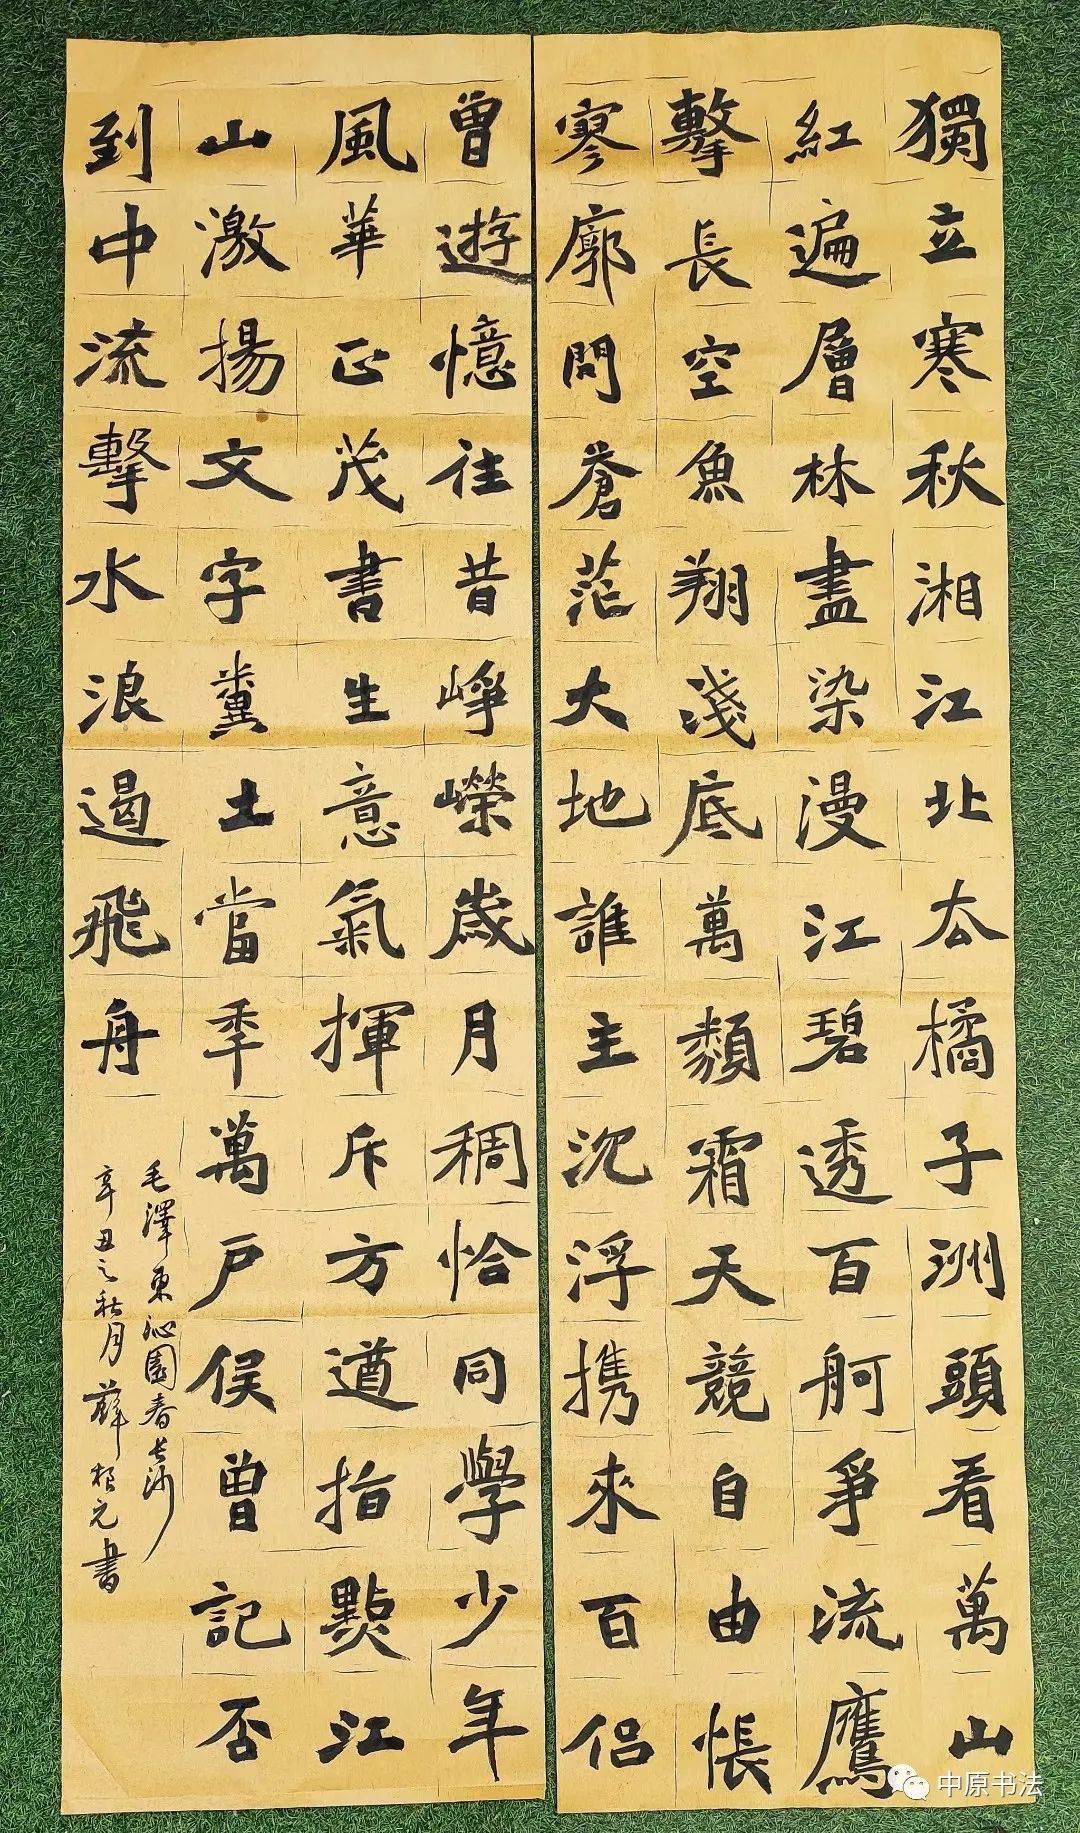 獨立寒秋湘江北去橘子洲頭看萬山
紅遍層林盡染漫江碧透百舸爭流鷹
擊長空魚翔淺底萬類霜天競自由悵
寥廓問蒼茫大地誰主沉浮携來百侣
曾遊憶往昔崢嶸歲月稠恰同學少年
風華正茂書生意氣揮斥方遒指點江
山激揚文字糞土當季萬戶侯曾記否
到中流擊水浪遏飛舟
毛澤東沁園春長沙
辛丑之秋月薛根元書
中原书法